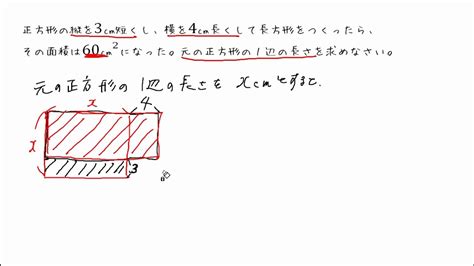 正方形の縦を3cm短くし、横を4cm長くして長方形をつくったら、
その面積は60cm²になった。元の正方形の1辺の長さを求めなさい。
元の正方形の1辺の長さを xcmとすると、
x 4
x
3